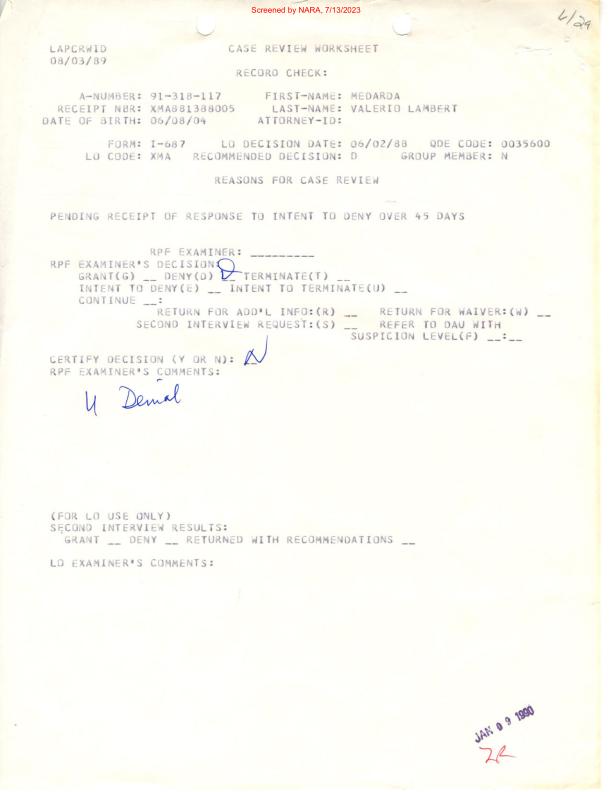 Screened by NARA, 7/13/2023
4/29
LAPCRWID CASE REVIEW WORKSHEET
08/03/89
RECORD CHECK:
A-NUMBER: 91-318-117 FIRST-NAME: MEDARDA
RECEIPT NBR: XMA881388005 LAST-NAME: VALERIO LAMBERT
DATE OF BIRTH: 06/08/04 ATTORNEY-ID:
FORM: I-687 LO DECISION DATE: 06/02/88 QDE CODE: 0035600
LO CODE: XMA RECOMMENDED DECISION: D GROUP MEMBER: N
REASONS FOR CASE REVIEW
PENDING RECEIPT OF RESPONSE TO INTENT TO DENY OVER 45 DAYS
RPF EXAMINER: _________
RPF EXAMINER'S DECISION: D
GRANT(G) __ DENY(D) __ TERMINATE(T) __
INTENT TO DENY(E) __ INTENT TO TERMINATE(U) __
CONTINUE __:
RETURN FOR ADD'L INFO:(R) __ RETURN FOR WAIVER:(W) __
SECOND INTERVIEW REQUEST:(S) __ REFER TO DAU WITH
SUSPICION LEVEL(F) __:__
CERTIFY DECISION (Y OR N): N
RPF EXAMINER'S COMMENTS:
Denial
(FOR LO USE ONLY)
SECOND INTERVIEW RESULTS:
GRANT __ DENY __ RETURNED WITH RECOMMENDATIONS __
LO EXAMINER'S COMMENTS:
JAN 09 1990